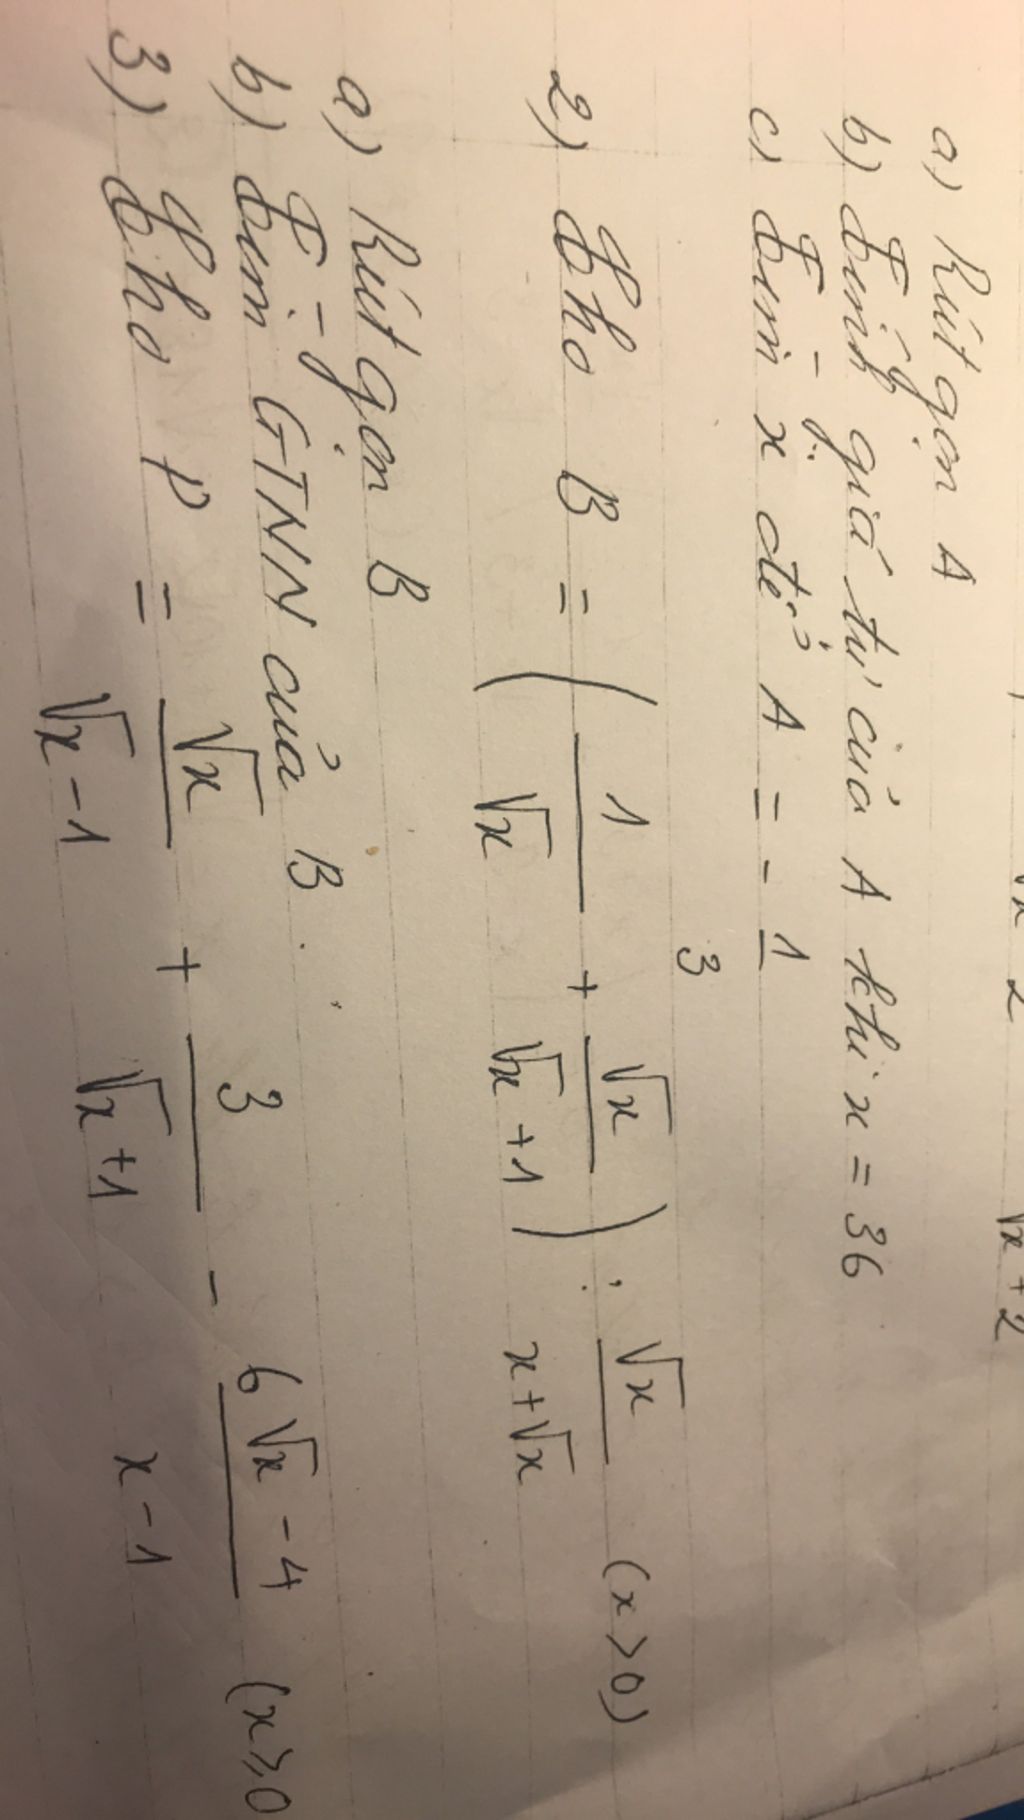 √x 2 √x + 2
a) Rút gọn A
b) Tính giá trị của A khi x = 36
c) Tìm x để A = - 1/3
2) Cho B = ( 1/√x + √x/√x + 1 ) : √x/x + √x (x > 0)
a) Rút gọn B
b) Tìm GTNN của B.
3) Cho P = √x/√x - 1 + 3/√x + 1 - 6√x - 4/x - 1 (x ⩾ 0